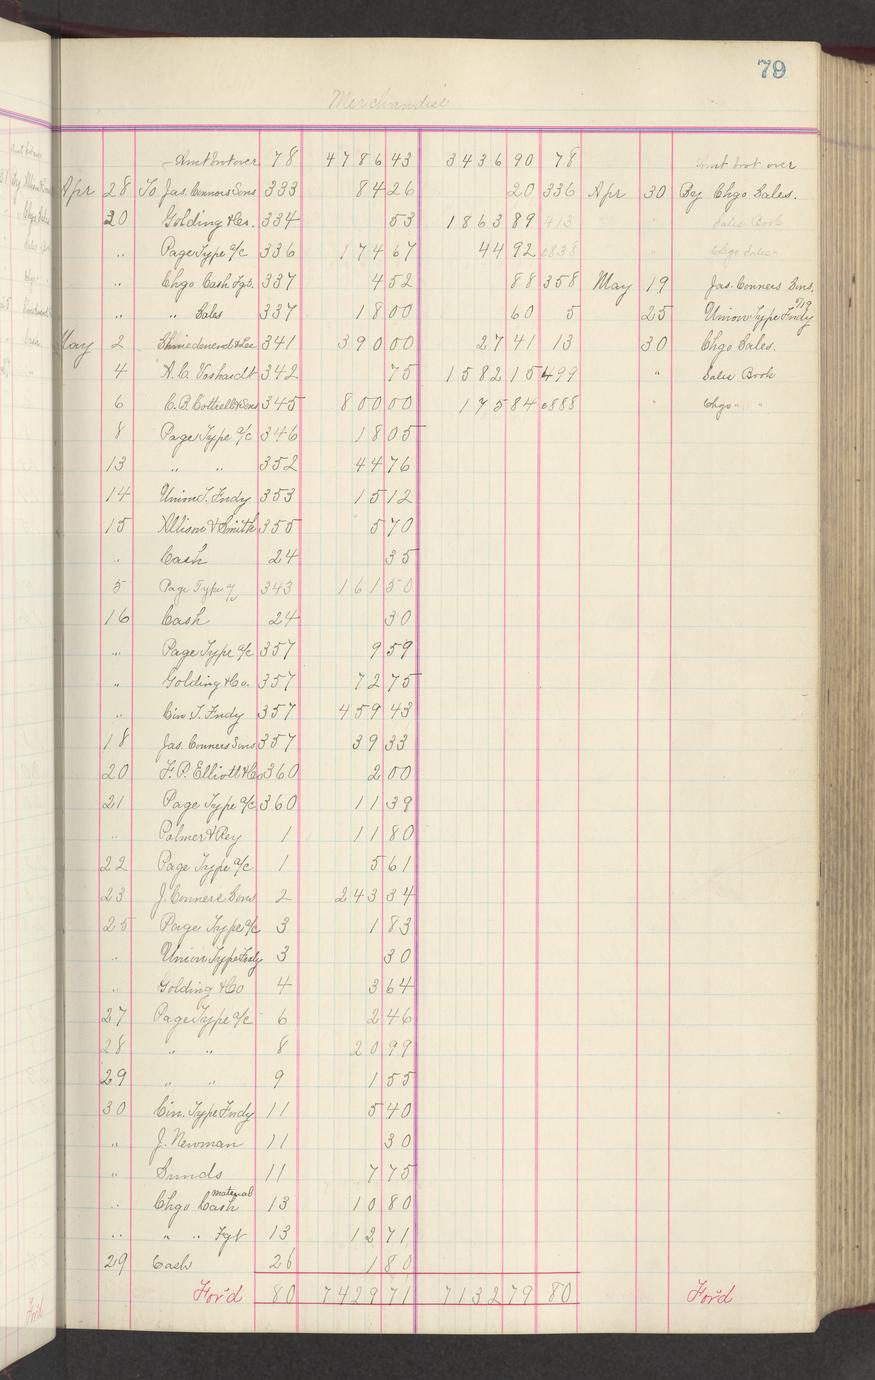 79
Merchandise
Amt brot over 78 4786 43 3436 90 78 Amt brot over
Apr 28 To Jas. Conners Sons 333 84 26 20 336 Apr 30 By Chgo Sales.
30 Golding & Co. 334 53 1863 89 413 " " Sales Book
" Page Type a/c 336 174 67 44 92 c838 " Chgo Sales "
" Chgo Cash Fgt. 337 4 52 88 358 May 19 Jas. Conners Sons.
" " Sales 337 18 00 60 5 25 Union Type Fndy
May 2 341 390 00 27 41 13 30 Chgo Sales.
4 A. C. Voshardt 342 75 1582 15 499 " Sales Book
6 C. B. Cottrell & Sons 345 800 00 175 84 c888 " Chgo " "
8 Page Type a/c 346 18 05
13 " " 352 44 76
14 Union T. Fndy 353 15 12
15 Allison & Smith 355 5 70
" Cash 24 35
5 Page Type a/c 343 161 50
16 Cash 24 30
" Page Type a/c 357 9 59
" Golding & Co. 357 72 75
" Cin T. Fndy 357 459 43
18 Jas. Conners Sons 357 39 33
20 F. P. Elliott & Co 360 2 00
21 Page Type a/c 360 11 39
" Palmer & Rey 1 11 80
22 Page Type a/c 1 5 61
23 J. Conners Sons 2 243 34
25 Page Type a/c 3 1 83
" Union Type Fndy 3 30
" Golding & Co 4 3 64
27 Page Type a/c 6 2 46
28 " " 8 20 99
29 " " 9 1 55
30 Cin. Type Fndy 11 5 40
" J. Newman 11 30
" Sunds 11 7 75
" Chgo Cash material 13 10 80
" " " Fgt 13 12 71
29 Cash 26 1 80
For'd 80 7429 71 7132 79 80 For'd